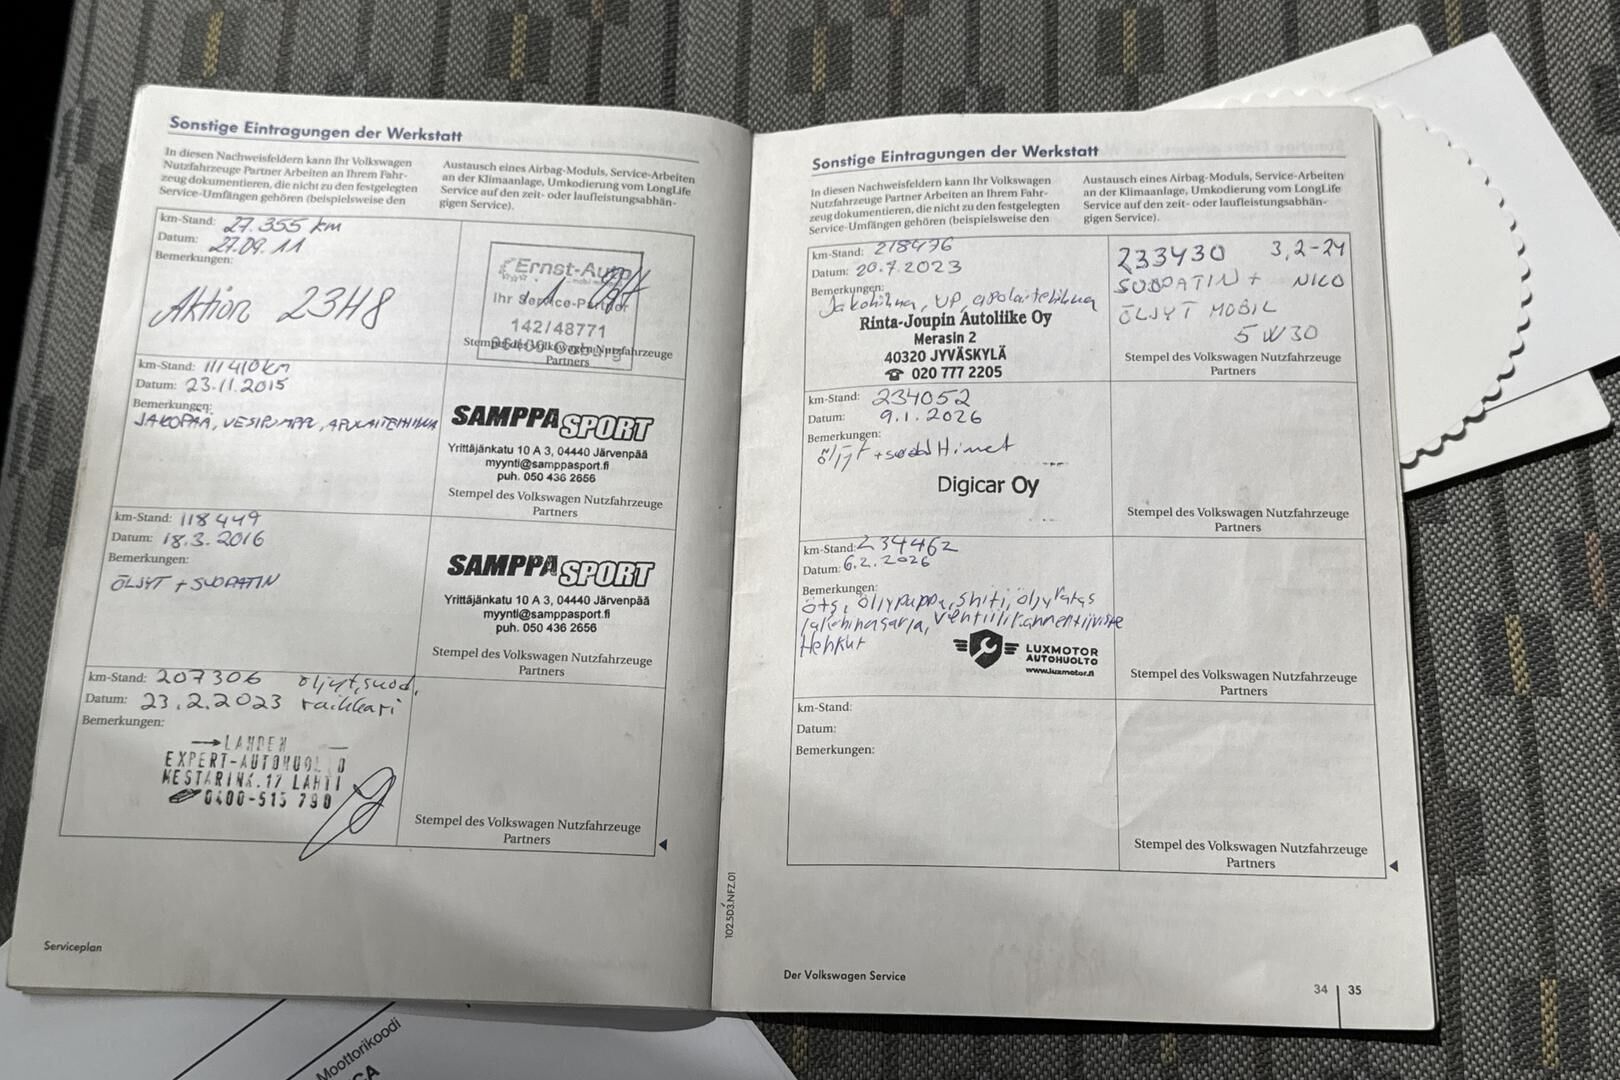 Sonstige Eintragungen der Werkstatt
In diesen Nachweisfeldern kann Ihr Volkswagen
Nutzfahrzeuge Partner Arbeiten an Ihrem Fahr-
zeug dokumentieren, die nicht zu den festgelegten
Service-Umfängen gehören (beispielsweise den
Austausch eines Airbag-Moduls, Service-Arbeiten
an der Klimaanlage, Umkodierung vom LongLife
Service auf den zeit- oder laufleistungsabhän-
gigen Service).
km-Stand: 27.355 km
Datum: 27.09.11
Bemerkungen:
Aktion 23H8
Ernst-Auto
Ihr Service-Partner
142/48771
Stempel des Volkswagen Nutzfahrzeuge
Partners
km-Stand: 111410km
Datum: 23.11.2015
Bemerkungen:
JAKOPÄÄ, VESIPUMPPU, APULAITEHIHNA
SAMPPA SPORT
Yrittäjänkatu 10 A 3, 04440 Järvenpää
myynti@samppasport.fi
puh. 050 436 2656
Stempel des Volkswagen Nutzfahrzeuge
Partners
km-Stand: 118449
Datum: 18.3.2016
Bemerkungen:
ÖLJYT + SUODATIN
SAMPPA SPORT
Yrittäjänkatu 10 A 3, 04440 Järvenpää
myynti@samppasport.fi
puh. 050 436 2656
Stempel des Volkswagen Nutzfahrzeuge
Partners
km-Stand: 207306 öljyt, suod,
Datum: 23.2.2023 raikkari
Bemerkungen:
LAHDEN
EXPERT-AUTOHUOLTO
MESTARINK.17 LAHTI
0400-515 790
Stempel des Volkswagen Nutzfahrzeuge
Partners
Serviceplan
102.5D3.NFZ.01
Sonstige Eintragungen der Werkstatt
In diesen Nachweisfeldern kann Ihr Volkswagen
Nutzfahrzeuge Partner Arbeiten an Ihrem Fahr-
zeug dokumentieren, die nicht zu den festgelegten
Service-Umfängen gehören (beispielsweise den
Austausch eines Airbag-Moduls, Service-Arbeiten
an der Klimaanlage, Umkodierung vom LongLife
Service auf den zeit- oder laufleistungsabhän-
gigen Service).
km-Stand: 218476
Datum: 20.7.2023
Bemerkungen:
Jakohihna, VP, apulaitehihna
Rinta-Joupin Autoliike Oy
Merasin 2
40320 JYVÄSKYLÄ
☎ 020 777 2205
233430 3,2-24
SUODATIN + NICO
ÖLJYT MOBIL
5W30
Stempel des Volkswagen Nutzfahrzeuge
Partners
km-Stand: 234052
Datum: 9.1.2026
Bemerkungen:
Öljyt + suodattimet
Digicar Oy
Stempel des Volkswagen Nutzfahrzeuge
Partners
km-Stand: 234462
Datum: 6.2.2026
Bemerkungen:
öts, öljypuppu, shiti, öljyratas
jakohihnasarja, venttiilikannentiiviste
Hehkut
LUXMOTOR
AUTOHUOLTO
www.luxmotor.fi
Stempel des Volkswagen Nutzfahrzeuge
Partners
km-Stand:
Datum:
Bemerkungen:
Stempel des Volkswagen Nutzfahrzeuge
Partners
Der Volkswagen Service
34 | 35
Moottorikoodi
CA